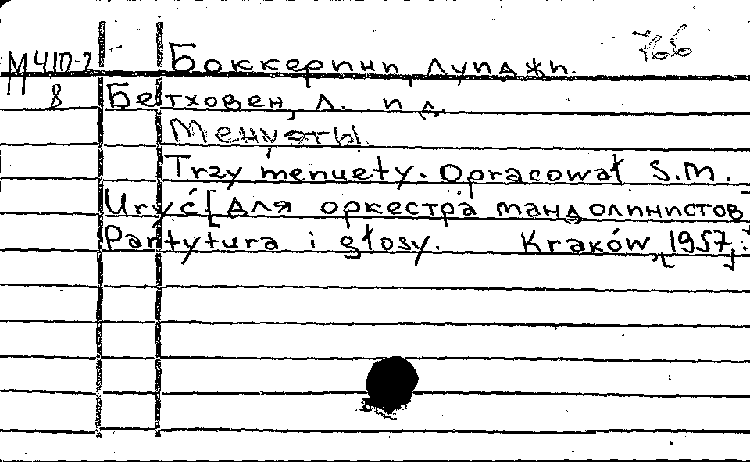 766
М 410-2 Боккерини, Луиджи.
8 Бетховен, Л. и д.
Менуэты.
Trzy menuety. Opracował S.M.
Uryć [для оркестра мандолинистов]
Partytura i głosy. Kraków, [1957].